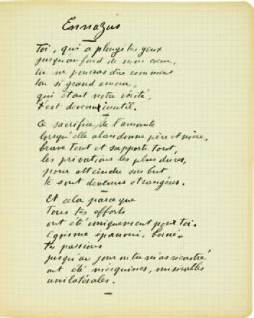 Toi, qui a plongé tes yeux
jusqu'au fond de mon cœur,
tu ne pourras dire comment
ton si grand amour,
qui était notre vérité,
t'est devenu inutil.
Ce sacrifice de l'amante
lorsqu'elle abandonne père et mère,
brave tout et supporte tout,
les privations les plus dures,
pour atteindre un but
te sont devenues étrangères.
Et cela parce que
Tous tes efforts
ont été uniquement pour toi.
Egoïsme épanoui,
tes passions
jusqu'au jour où tu m'as rencontré
ont été mesquines, misérables
unilatérales.